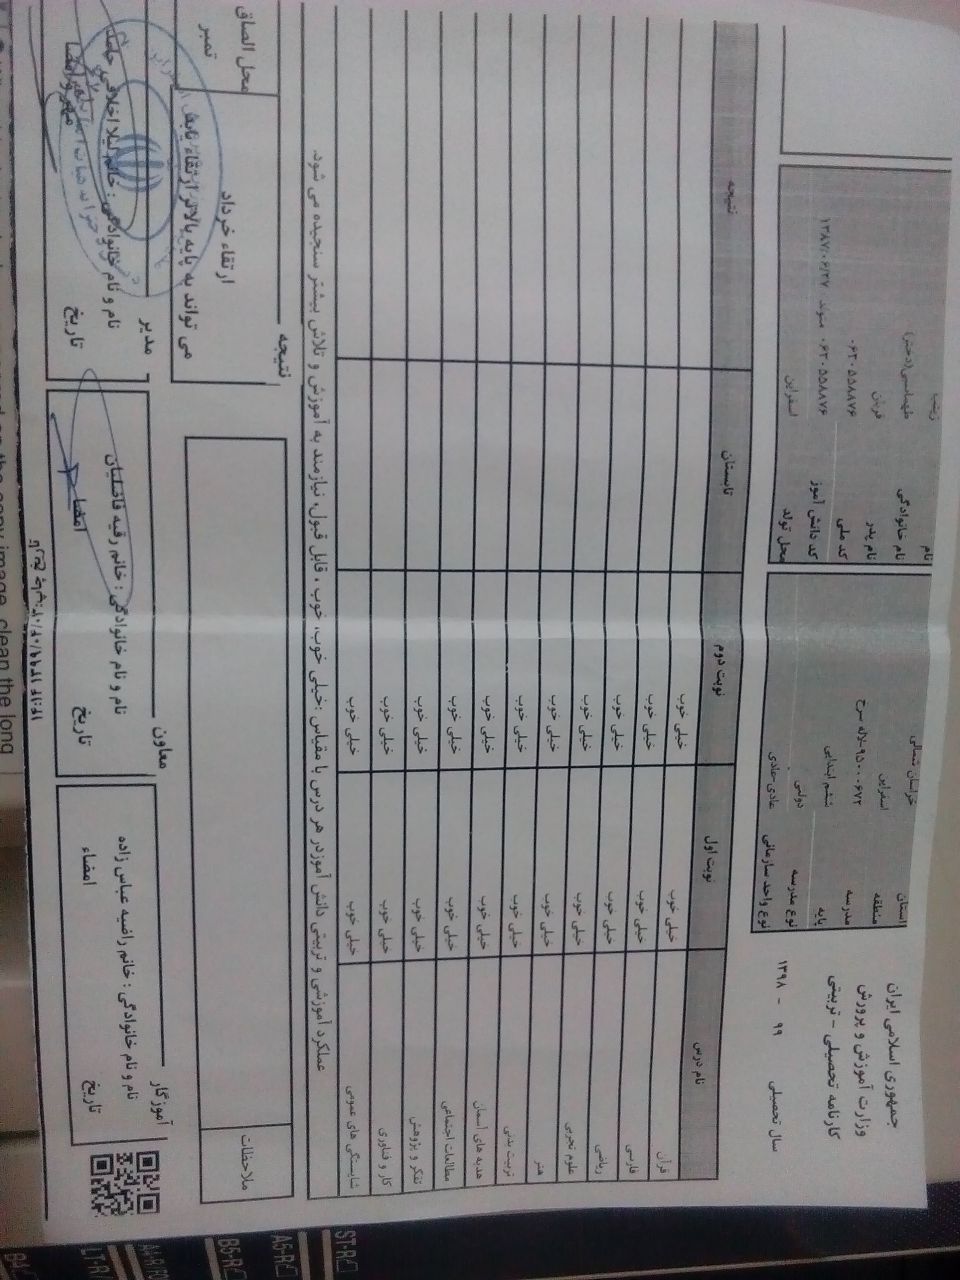 جمهوری اسلامی ایران
وزارت آموزش و پرورش
کارنامه تحصیلی - تربیتی
سال تحصیلی ۹۹ - ۱۳۹۸
استان خراسان شمالی
منطقه اسفراین
مدرسه ۹۵۰۰۰۶۷۲-لاله سرخ
پایه ششم ابتدایی
نوع مدرسه دولتی
نوع واحد سازمانی عادی-عادی
نام زینب
نام خانوادگی طهماسبی(دختر)
نام پدر قربان
کد ملی ۰۶۲۰۵۵۸۸۷۶
کد دانش آموز ۰۶۲۰۵۵۸۸۷۶ متولد ۱۳۸۷/۰۶/۲۷
محل تولد اسفراین
نام درس نوبت اول نوبت دوم تابستان نتیجه
قرآن خیلی خوب خیلی خوب
فارسی خیلی خوب خیلی خوب
ریاضی خیلی خوب خیلی خوب
علوم تجربی خیلی خوب خیلی خوب
هنر خیلی خوب خیلی خوب
تربیت بدنی خیلی خوب خیلی خوب
هدیه های آسمان خیلی خوب خیلی خوب
مطالعات اجتماعی خیلی خوب خیلی خوب
تفکر و پژوهش خیلی خوب خیلی خوب
کار و فناوری خیلی خوب خیلی خوب
شایستگی های عمومی خیلی خوب خیلی خوب
عملکرد آموزشی و تربیتی دانش آموزدر هر درس با مقیاس :خیلی خوب، خوب ، قابل قبول، نیازمند به آموزش و تلاش بیشتر سنجیده می شود.
ملاحظات
نتیجه
ارتقاء خرداد
می تواند به پایه بالاتر ارتقاء یابد
محل الصاق
تمبر
آموزگار
نام و نام خانوادگی : خانم راضیه عباس زاده
تاریخ امضاء
معاون
نام و نام خانوادگی : خانم رقیه فاضلیان
تاریخ امضاء
مدیر
نام و نام خانوادگی : خانم لیلا اخلاقی
تاریخ مهر و امضا
ST-R
A5-R
B5-R
LT-R
B4